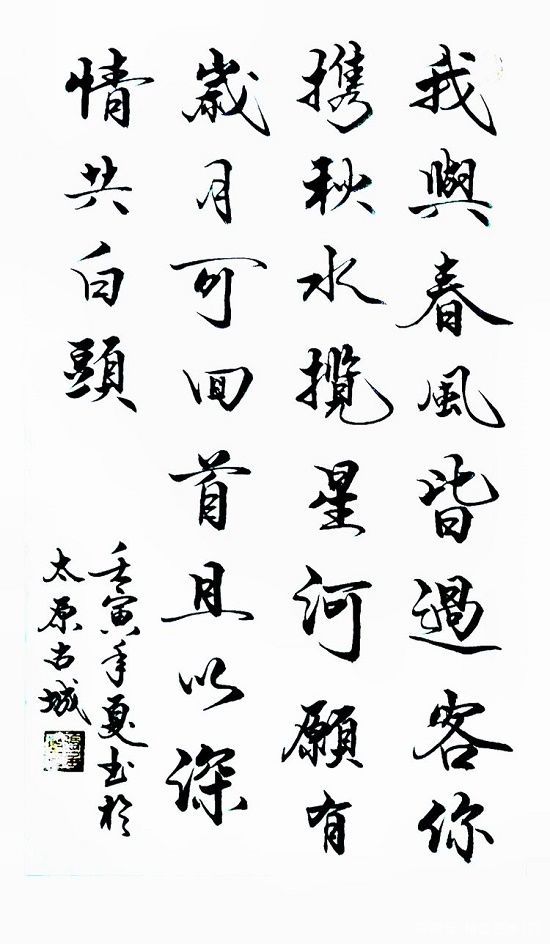 我與春風皆過客你
携秋水攬星河願有
歲月可回首且以深
情共白頭
壬寅年夏書於
太原古城